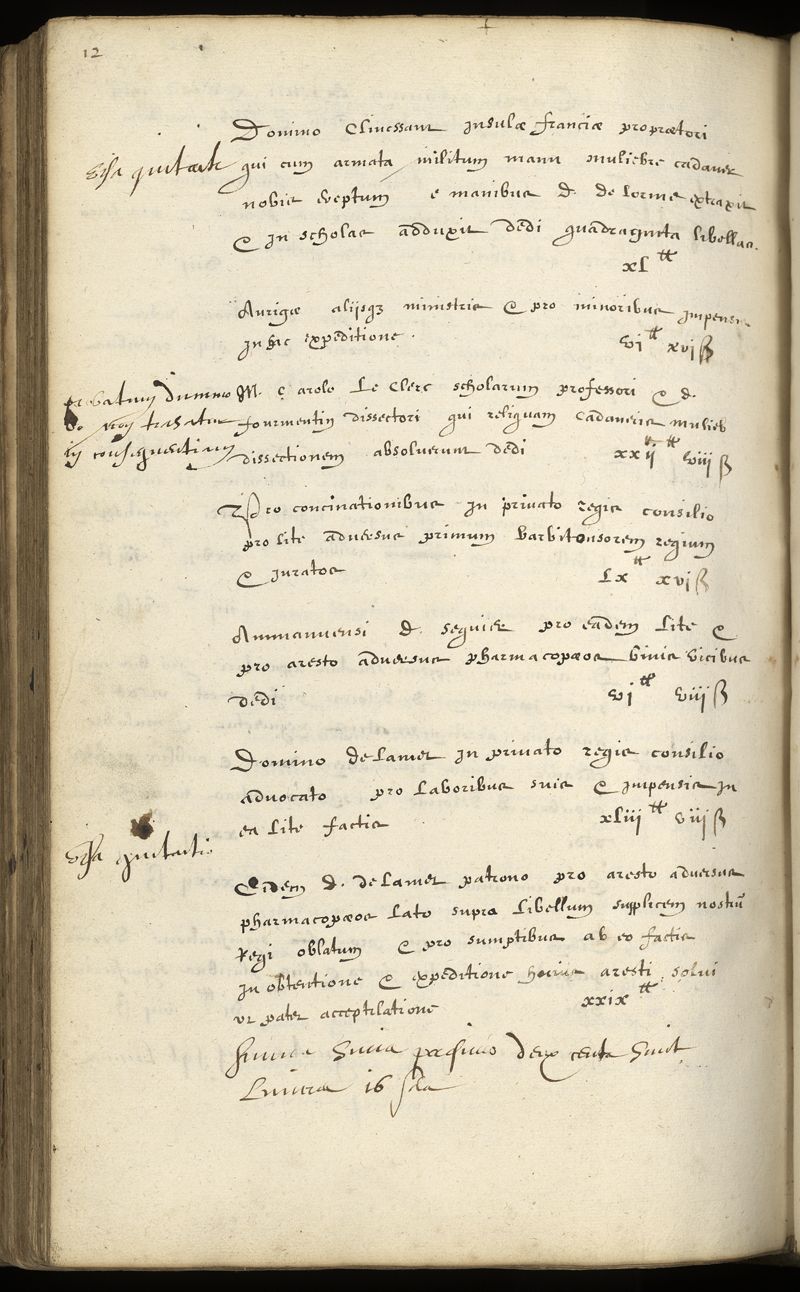 12
Domino Clinessant insulæ franciæ proprætori
visa quitat qui cum armata militum manu muliebre cadaver
nobis ereptum e manibus d. de Lorme extraxit
& in scholas adduxit dedi quadraginta libellas.
xl tt
Aurigæ alijsq3 ministris & pro minoribus impensis
in hac expeditione. vi tt xvi ß
M. Carolo Le Clerc scholarum professori & d.
fourmentin dissectori qui reliquam cadaveris mulieb
in consequentiam dissectionem absolverunt dedi xxii tt viii ß
Pro concinationibus in privato regis consilio
pro lite adversus primum barbitonsorem regium
& iuratos Lx tt xvi ß
Amanuensi d. seguier pro eadem lite &
pro aresto adversus pharmacopæos binis vicibus
dedi vi tt viii ß
Domino de Lamet in privato regis consilio
advocato pro laboribus suis & impensis in
ea lite factis xliii tt viii ß
visa quitatio
Eidem d. de Lamet patrono pro aresto adversus
pharmacopæos lato supra libellum supplicem nostrũ
Regi oblatum & pro sumptibus ab eo factis
in obtentione & expeditione huius aresti solui
ut patet acceptilatione xxix tt
Summa deux cents huit
16